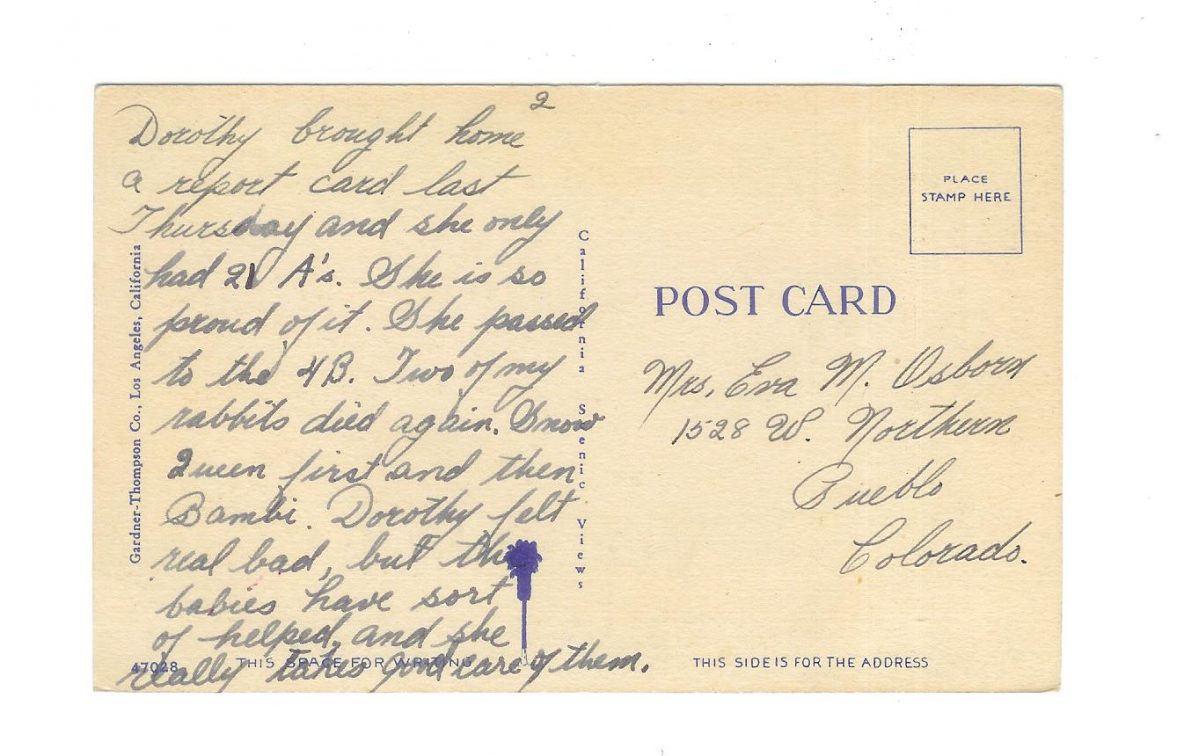 2
Dorothy brought home
a report card last
Thursday and she only
had 21 A's. She is so
proud of it. She passed
to the 4B. Two of my
rabbits died again. Snow
Queen first and then
Bambi. Dorothy felt
real bad, but the
babies have sort
of helped, and she
really takes good care of them.
Gardner-Thompson Co., Los Angeles, California
California Scenic Views
47028
THIS SPACE FOR WRITING
PLACE
STAMP HERE
POST CARD
Mrs. Eva M. Osborn
1528 W. Northern
Pueblo
Colorado.
THIS SIDE IS FOR THE ADDRESS